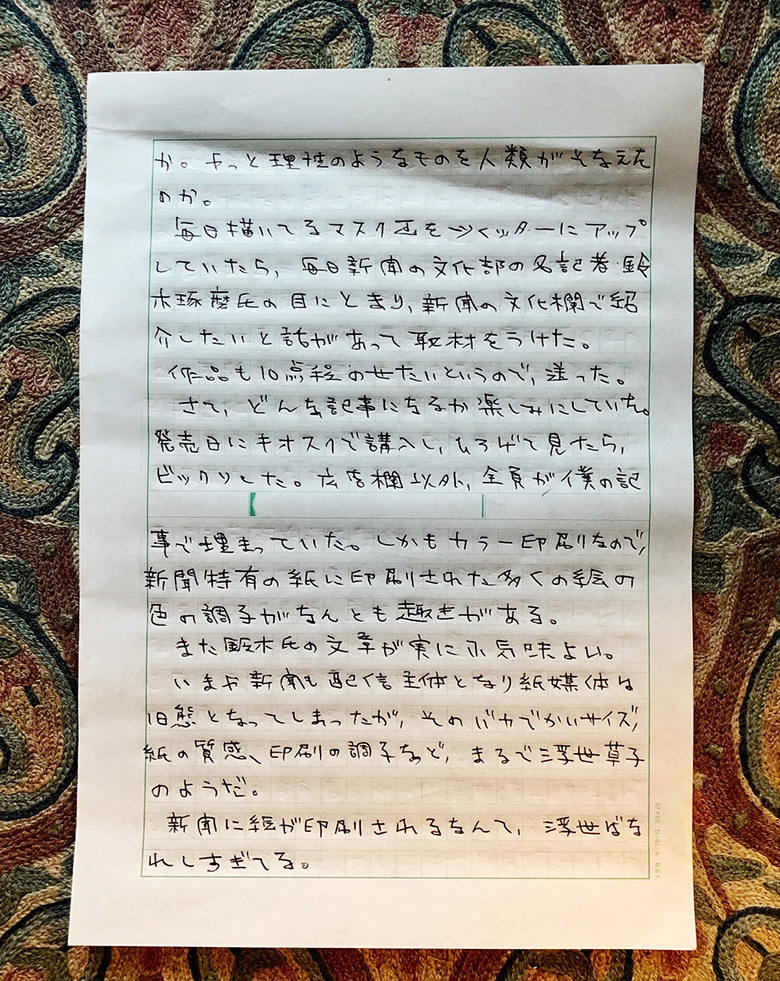 か。やっと理性のようなものを人類がそなえた
のか。
毎日描いてるマスク画をツイッターにアップ
していたら、毎日新聞の文化部の名記者・鈴
木琢磨氏の目にとまり、新聞の文化欄で紹
介したいと話があって取材をうけた。
作品も10点程のせたいというので、送った。
さて、どんな記事になるか楽しみにしていた。
発売日にキオスクで講入し、ひろげて見たら、
ビックリした。広告欄以外、全頁が僕の記
事で埋まっていた。しかもカラー印刷なので、
新聞特有の紙に印刷された多くの絵の
色の調子がなんとも趣きがある。
また鈴木氏の文章が実に小気味よい。
いまや新聞も配信主体となり紙媒体は
旧態となってしまったが、そのバカでかいサイズ、
紙の質感、印刷の調子など、まるで浮世草子
のようだ。
新聞に絵が印刷されるなんて、浮世ばな
れしすぎてる。